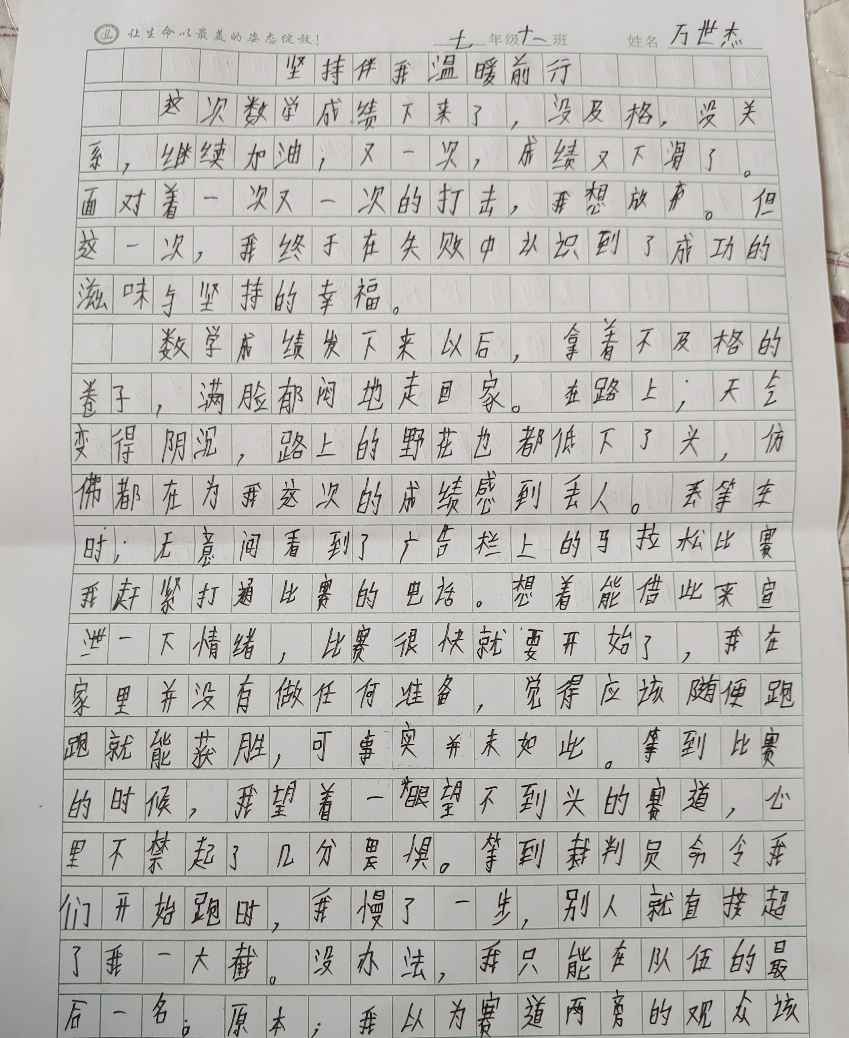 让生命以最美的姿态绽放！ 七年级十一班 姓名 万世杰
坚持伴我温暖前行
这次数学成绩下来了，没及格，没关
系，继续加油，又一次，成绩又下滑了。
面对着一次又一次的打击，我想放弃。但
这一次，我终于在失败中认识到了成功的
滋味与坚持的幸福。
数学成绩发下来以后，拿着不及格的
卷子，满脸郁闷地走回家。在路上；天气
变得阴沉，路上的野花也都低下了头，仿
佛都在为我这次的成绩感到丢人。丢等车
时；无意间看到了广告栏上的马拉松比赛
我赶紧打通比赛的电话。想着能借此来宣
泄一下情绪，比赛很快就要开始了，我在
家里并没有做任何准备，觉得应该随便跑
跑就能获胜，可事实并未如此。等到比赛
的时候，我望着一眼望不到头的赛道，心
里不禁起了几分畏惧。等到裁判员命令我
们开始跑时，我慢了一步，别人就直接超
了我一大截。没办法，我只能在队伍的最
后一名。原本；我以为赛道两旁的观众该